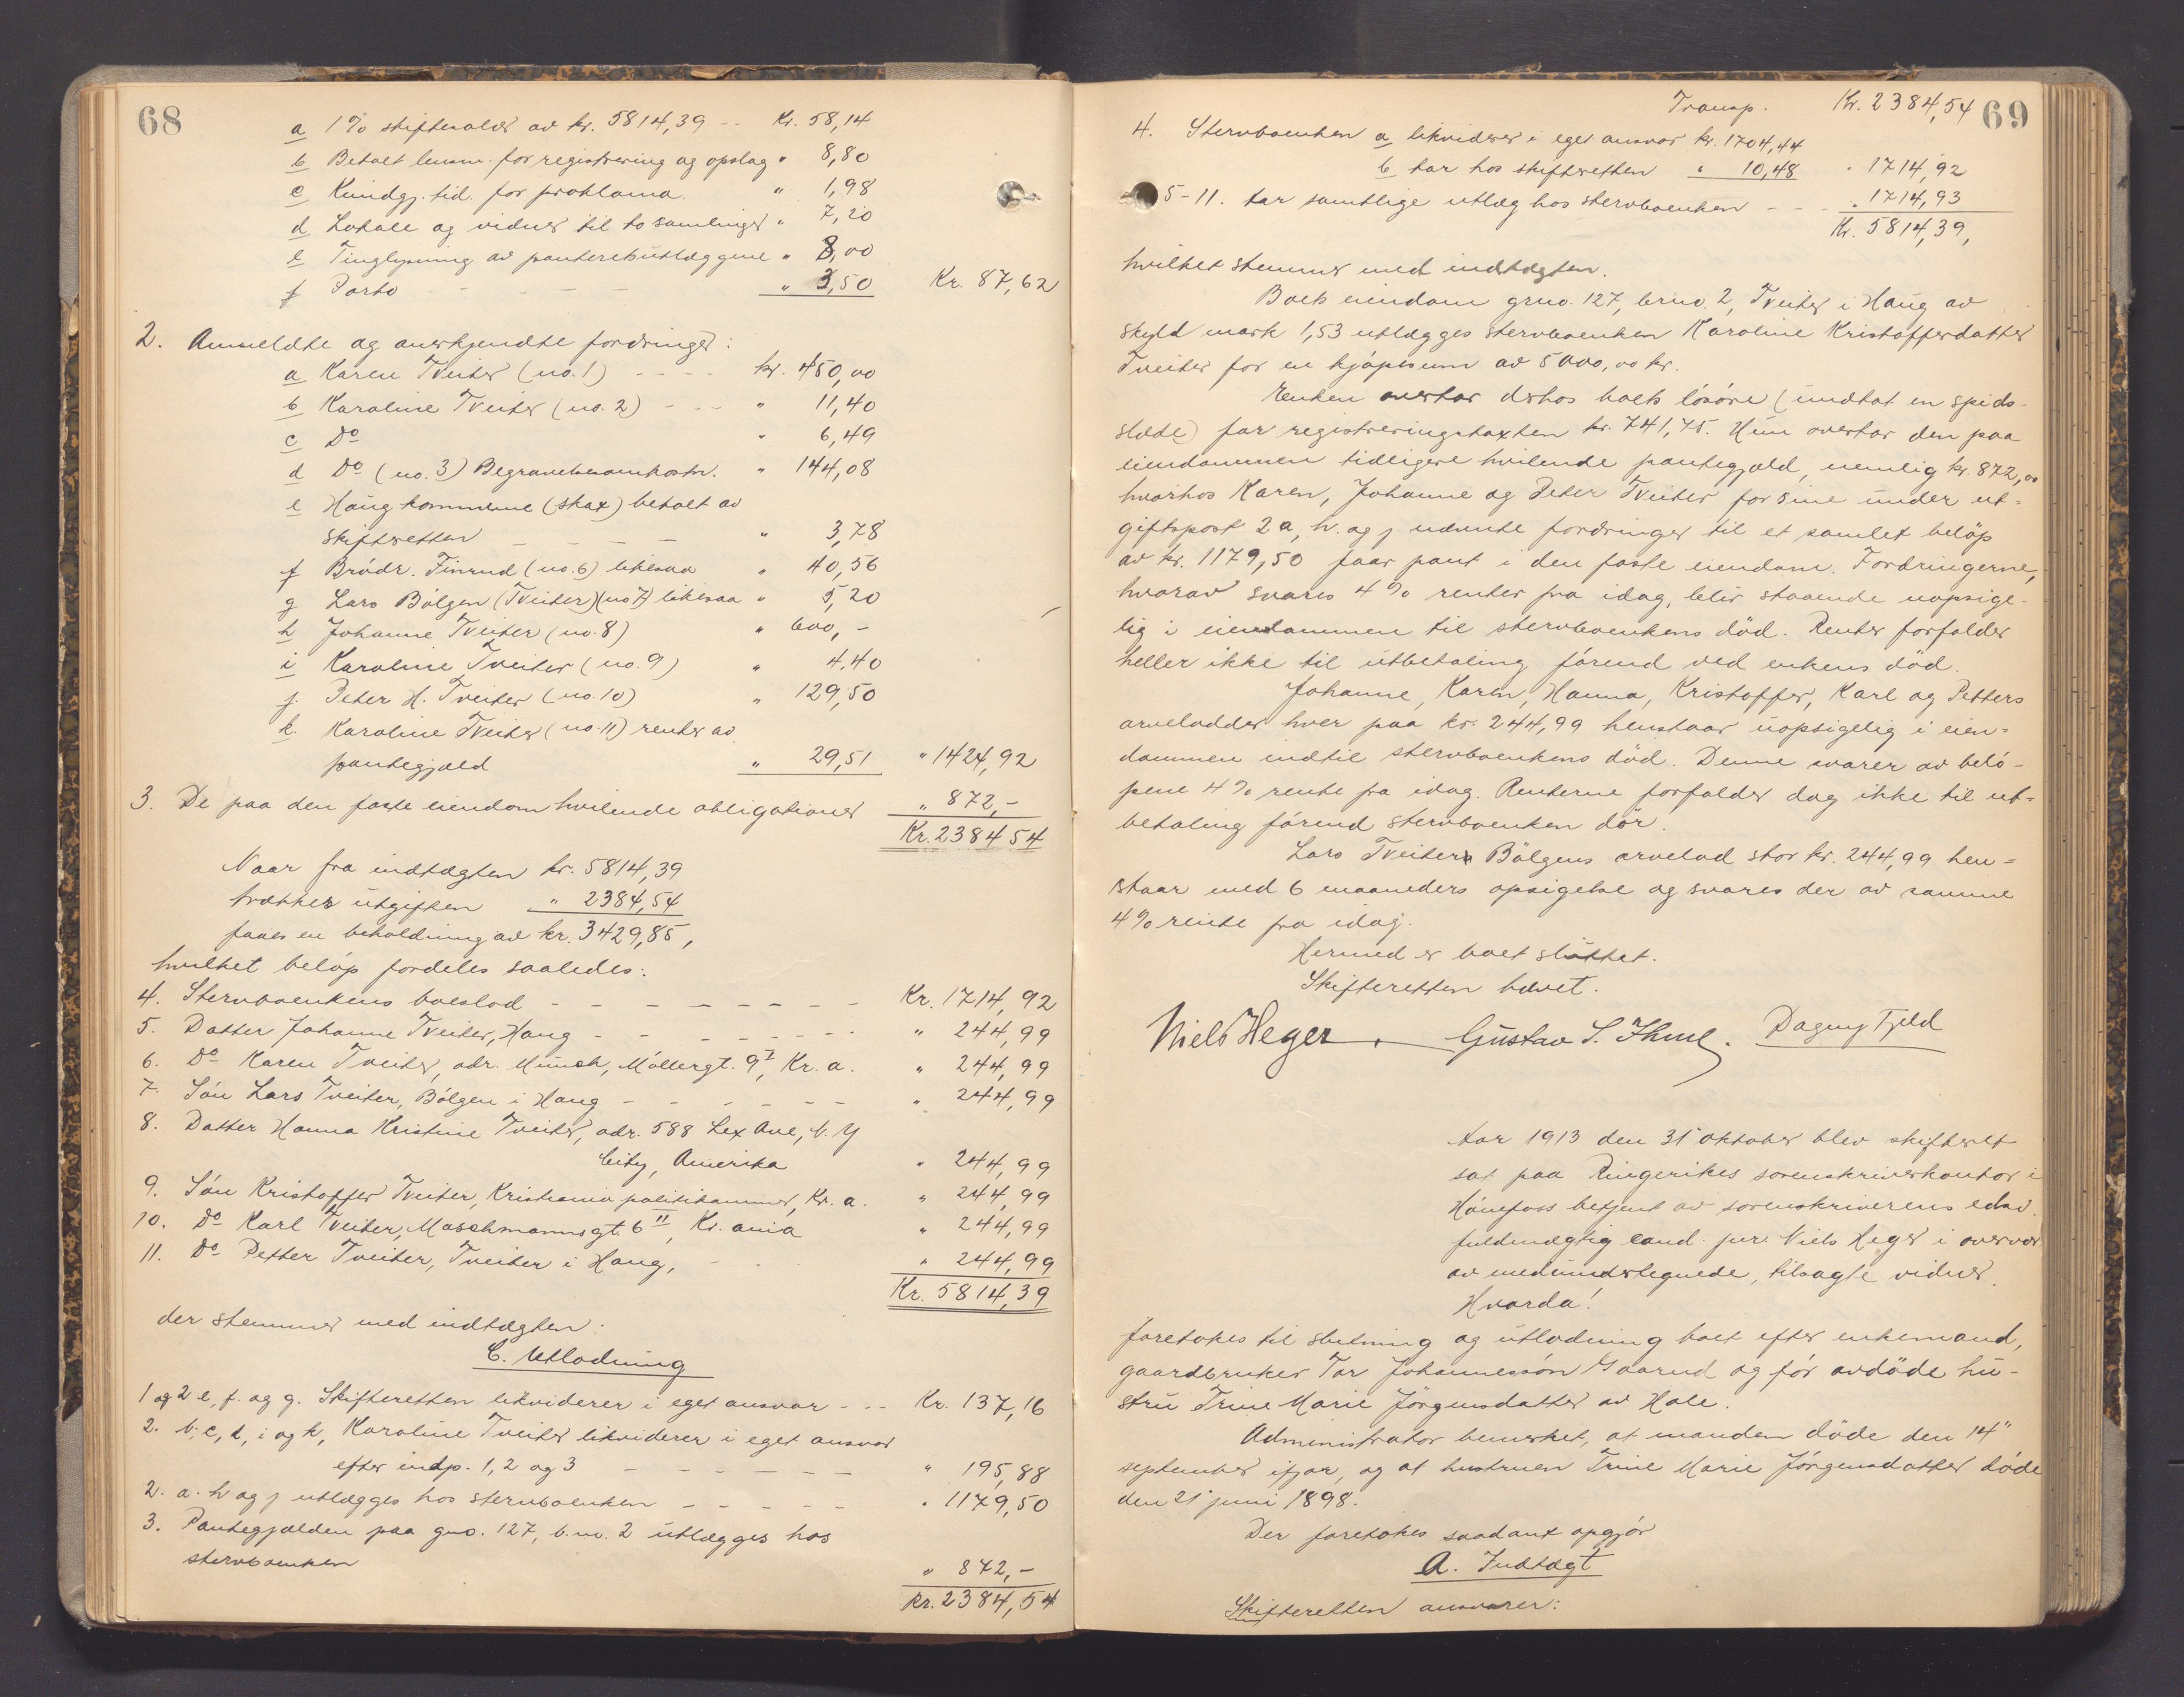 68
a 1% skifteralds av kr. 5814,39 -- Kr. 58,14
b Betalt lensm. for registrering og opslag " 8,80
c Kundgj. tid. for proklama. " 1,98
d Lokale og vidner til to samlinger " 7,20
e Tinglysning av panteretsutlæggene " 8,00
f Porto - - - - - " 3,50 Kr. 87,62
2. Anmeldte og anerkjendte fordringer:
a Karen Tveiter (no. 1) - - - - kr. 450,00
b Karoline Tveiter (no. 2) - - - " 11,40
c Do " 6,49
d Do (no. 3) Begravelsesomkostn. " 144,08
e Haug kommune (skat) betalt av
skifteretten - - - - " 3,78
f Brödr. Finrud (no. 6) likesaa " 40,56
g Lars Bölgen (Tveiter) (no 7) likesaa " 5,20
h Johanne Tveiter (no. 8) " 600,-
i Karoline Tveiter (no. 9) " 4,40
j. Peter H. Tveiter (no. 10) " 129,50
k. Karoline Tveiter (no. 11) renter av
pantegjæld " 29,51 " 1424,92
3. De paa den faste eiendom hvilende obligationer " 872,-
Kr. 2384 54
Naar fra indtægten kr. 5814,39
trækkes utgiften " 2384,54
faaes en beholdning av kr. 3429,85,
hvilket beløp fordeles saaledes:
4. Stervboenkens boeslod - - - - - - - - Kr. 1714,92
5. Datter Johanne Tveiter, Haug - - - - - - - " 244,99
6. Do Karen Tveiter, adr. Munch, Möllergt. 9I, Kr. a. " 244,99
7. Sön Lars Tveiter, Bölgen i Haug - - - - - - " 244,99
8. Datter Hanna Kristine Tveiter, adr. 588 Lex Ave, N. Y
City, Amerika " 244,99
9. Sön Kristoffer Tveiter, Kristiania politikammer, Kr. a. " 244,99
10. Do Karl Tveiter, Maschmannsgt. 6 II, Kr. ania " 244,99
11. Do Petter Tveiter, Tveiter i Haug, - - " 244,99
Kr. 5814,39
der stemmer med indtægten:
C. Utlodning
1 og 2 e, f. og g. Skifteretten likviderer i eget ansvar - - - Kr. 137,16
2. b, c, d, i og k, Karoline Tveiter likviderer i eget ansvar
efter indp. 1, 2 og 3 - - - - - - " 195,88
2. a. h og j utlægges hos stervboenken - - - - - " 1179,50
3. Pantegjælden paa gno. 127, b. no. 2 utlægges hos
stervboenken " 872,-
Kr. 2384,54
69
Transp. Kr. 2384,54
4. Stervboenken a likviderer i eget ansvar kr. 1704,44
b tar hos skifteretten " 10,48 " 1714,92
5-11. tar samtlige utlæg hos stervboenken - - - " 1714,93
Kr. 5814,39,
hvilket stemmer med indtægten.
Boets eiendom grno. 127, brno. 2, Tveiter i Haug av
skyld mark 1,53 utlægges stervboenken Karoline Kristoffersdatter
Tveiter for en kjøpesum av 5000,00 kr.
Enken overtar derhos boets lösöre (undtat en spids-
slæde) for registreringstaxten kr. 741,75. Hun overtar den paa
eiendommen tidligere hvilende pantegjæld, nemlig kr. 872,00
hvorhos Karen, Johanne og Peter Tveiter for sine under ut-
giftspost 2 a, h. og j nævnte fordringer til et samlet belöp
av kr. 1179,50 faar pant i den faste eiendom. Fordringerne,
hvorav svares 4% renter fra idag, blir staaende uopsige-
lig i eiendommen til stervboenkens död. Renter forfalder
heller ikke til utbetaling förend ved enkens död.
Johanne, Karen, Hanna, Kristoffer, Karl og Petters
arvelodder hver paa kr. 244,99 henstaar uopsigelig i eien-
dommen indtil stervboenkens död. Denne svarer av belö-
pene 4% rente fra idag. Renterne forfalder dog ikke til ut-
betaling förend stervboenken dör.
Lars Tveiter Bölgens arvelod stor kr. 244,99 hen-
staar med 6 maaneders opsigelse og svares der av samme
4% rente fra idag.
Hermed er boet sluttet.
Skifteretten hævet.
Niels Heger. Gustav S. Dagny Fjeld
Aar 1913 den 31' oktober blev skifteret
sat paa Ringerikes sorenskriverkontor i
Hönefoss betjent av sorenskriverens edsv.
fuldmægtig cand. jur. Niels Heger i overvær
av medundertegnede, tilsagte vidner.
Hvorda!
foretokes til slutning og utlodning boet efter enkemand,
gaardbruker Tor Johannessön Gaarud og før avdöde hu-
stru Trine Marie Jörgensdatter av Hole.
Administrator bemerket, at manden döde den 14"
september ifjor, og at hustruen Trine Marie Jörgensdatter döde
den 21' juni 1898.
Der foretokes saadant opgjör
A. Indtægt
Skifteretten ansvarer: